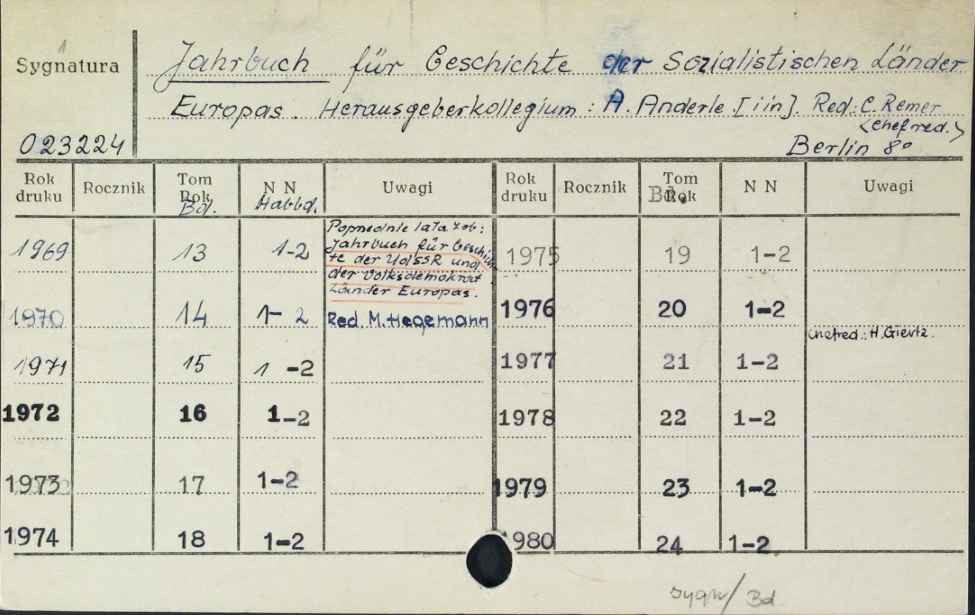 Sygnatura
Jahrbuch für Geschichte der Sozialistischen Länder
Europas. Herausgeberkollegium: A. Anderle [i in]. Red: C. Remer
<Chefred.>
023224
Berlin 8°
Rok druku Rocznik Tom Rok Bd. N N Halbbd. Uwagi Rok druku Rocznik Tom Rok Bd. N N Uwagi
1969 13 1-2 1975 19 1-2
Poprzednie lata zob:
Jahrbuch für Geschich
te der UdSSR und
der Volksdemokrat.
Länder Europas.
1970 14 1-2 Red. M. Hegemann 1976 20 1-2
Chefred.: H. Giertz.
1971 15 1-2 1977 21 1-2
1972 16 1-2 1978 22 1-2
1973 17 1-2 1979 23 1-2
1974 18 1-2 1980 24 1-2
Sygn/Bd